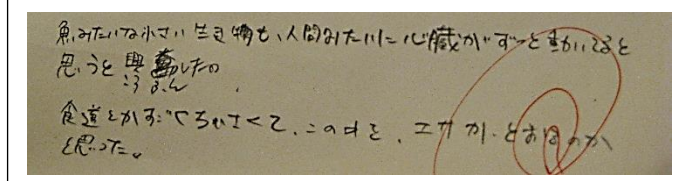 魚みたいな小さい生き物も、人間みたいに心臓がずっと動いてると
思うと興奮したの
こうふん
食道とかすごくちいさくて、この中を、エサが、とおるのか
と思った。